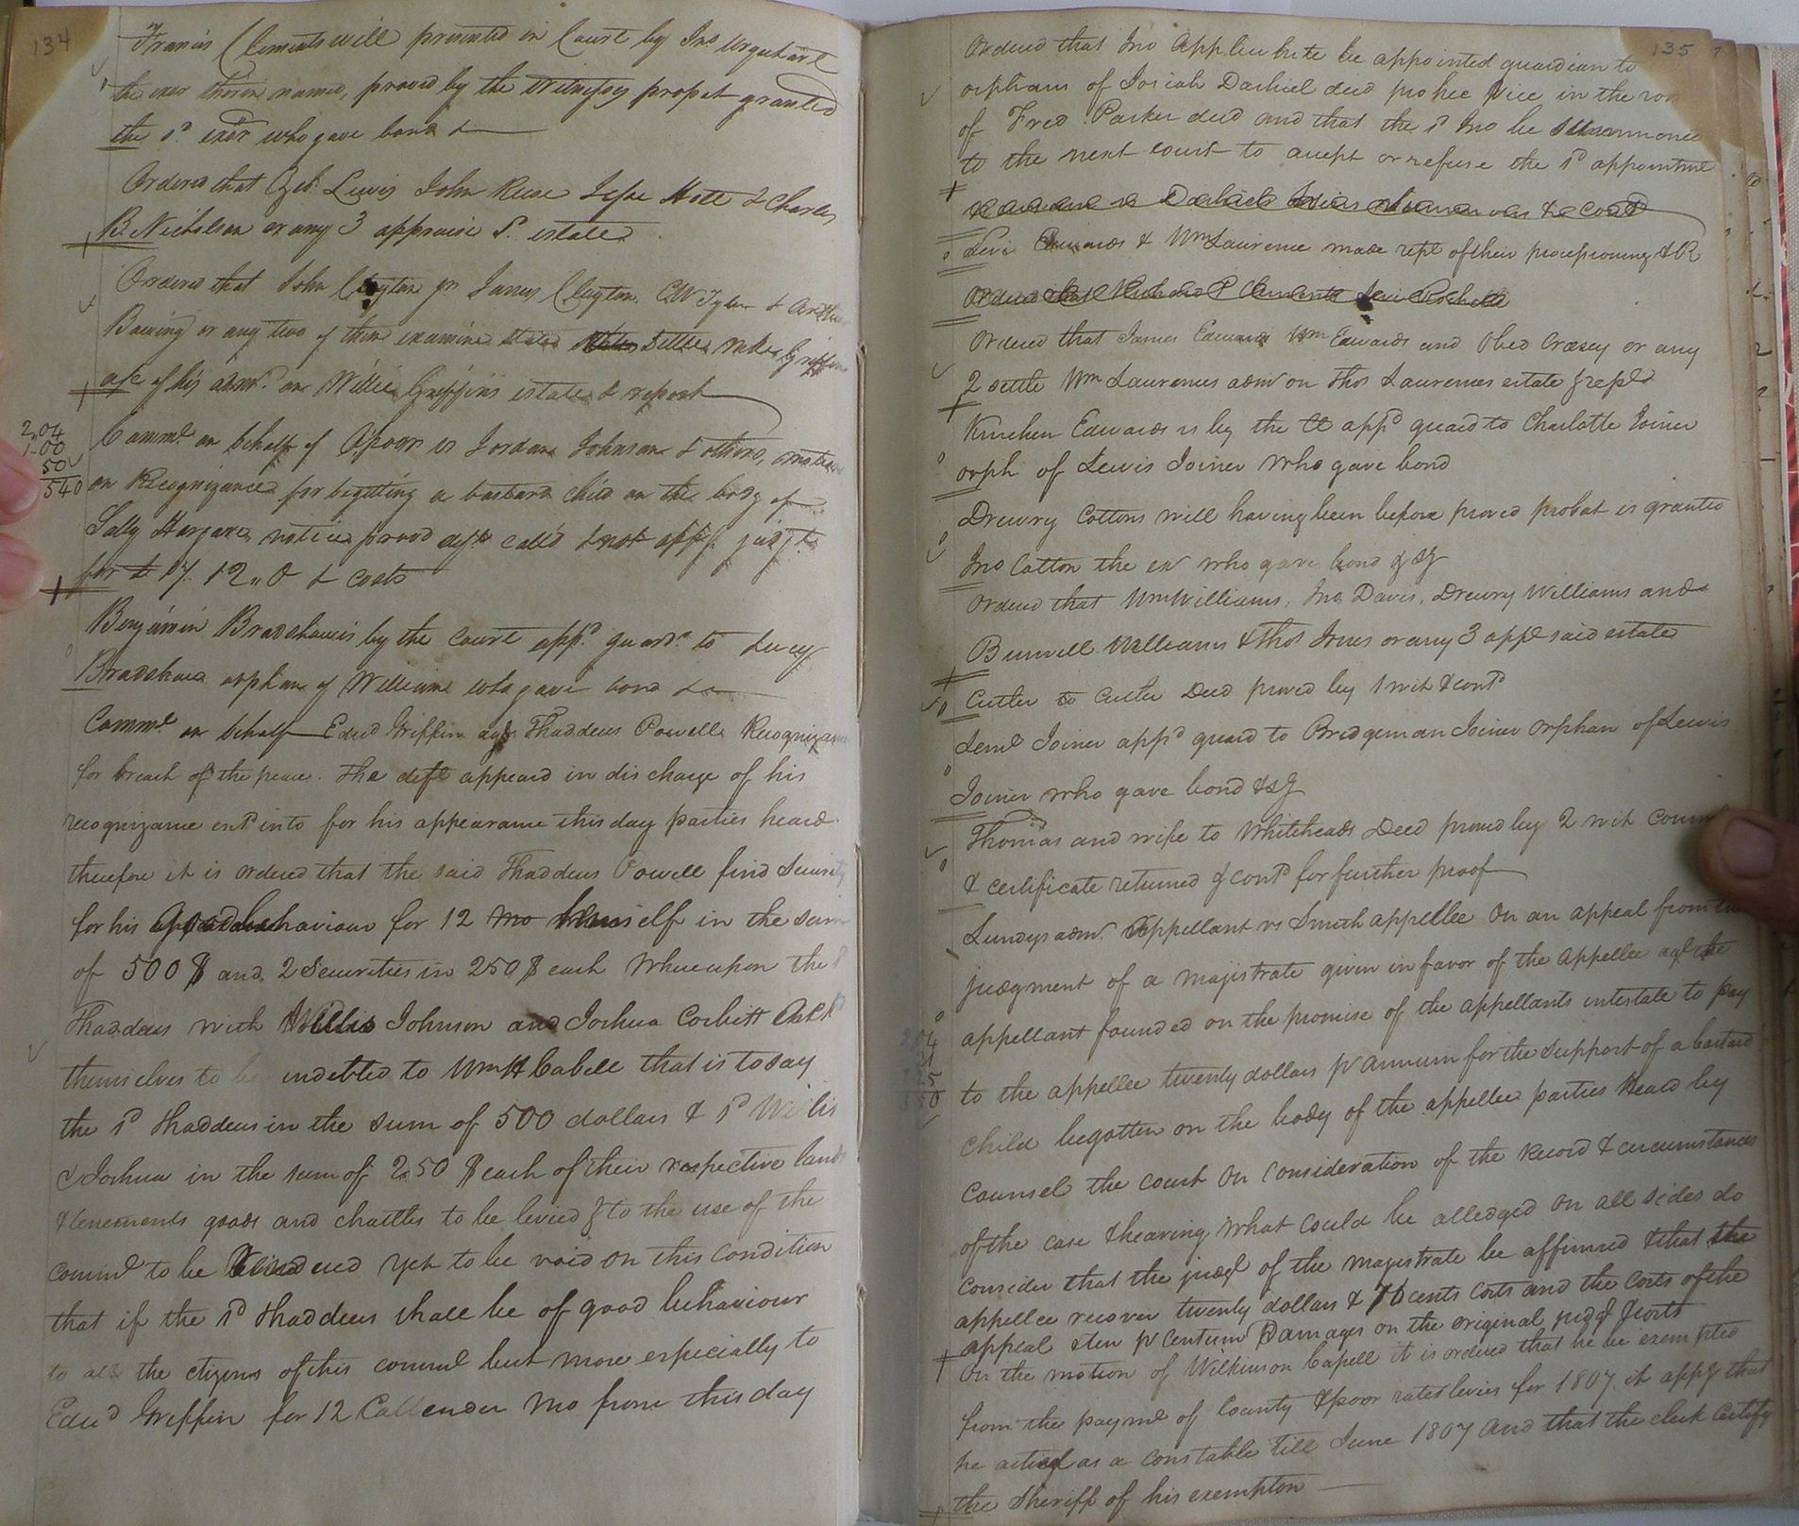 134
Francis Clements will presented in Court by Jno Urquhart
the exor therein named, proved by the witnesses probat granted
the sd. exor who gave bond &
Ordered that Geo. Lewis John Rease Jesse Holt & Charles
B. Nicholson or any 3 appraise sd. estate
Ordered that John Clayton jr James Clayton CW Tyler &
or any two of them examine state settle
a/c of his admn. on Willie Griffins estate & report
2,,04
1-00
50
540
Commd. on behalf of Opoor vs Jordan Johnson & others, motion
on Recognizance for begitting a bastard child on the body of
Sally Hargrave notice proved defts called & not appg. judgt.
for $ 17. 12,,0 & costs
Benjamin Bradshaw is by the Court appd. guard. to Lucy
Bradshaw orphan of William who gave bond &c
Commd. on behalf Edwd Griffin agt Thaddeus Powell Recognizance
for breach of the peace. The deft appeard in discharge of his
recognizance entd into for his appearance this day parties heard
therefore it is ordered that the said Thaddeus Powell find Security
for his Good behaviour for 12 mo himself in the sum
of 500 $ and 2 Securities in 250 $ each Whereupon the sd
Thaddeus with Willis Johnson and Joshua Corbitt Ackd
themselves to be indebted to WmH Cabell that is to say
the sd Thaddeus in the sum of 500 dollars & sd Willis
& Joshua in the sum of 250 $ each of their respective lands
& tenements goods and chattles to be levied & to the use of the
commd to be Rendered yet to be void on this condition
that if the sd Thaddeus shall be of good behaviour
to all the citizens of this commd but more especially to
Edwd Griffin for 12 Callender mo from this day
135
Ordered that Jno Applewhite be appointed guardian to
orphans of Josiah Dashiel decd pro hec vice in the room
of Fred Parker decd and that the sd Jno be summoned
to the next court to accept or refuse the sd appointmt
Levi Edwards & Wm Laurence made rept of their processioning & R
Ordered that Richard P Clements
Ordered that James Edwards Wm Edwards and Obed Crasey or any
2 settle Wm Laurences admr on Thos Laurences estate & repd
Kinchen Edwards is by the Ct appd guard to Charlotte Joiner
orph of Lewis Joiner who gave bond
Drewry Cottons will having been before proved probat is granted
Jno Cotton the exr who gave bond & sy
Ordered that Wm Williams, Jno Davis, Drewry Williams and
Burwell Williams & Thos Ivies or any 3 appd said estate
Cutler to Cutler Deed proved by 1 wit & contd
Leml Joiner appd guard to Bridgeman Joiner Orphan of Lewis
Joiner who gave bond & sy
Thomas and wife to Whiteheads Deed proved by 2 wit
& certificate returned & contd for further proof
Lundys admr. Appellant vs Smith appellee On an appeal from
judgment of a majistrate given in favor of the Appellee agt the
appellant founded on the promise of the appellants intestate to pay
to the appellee twenty dollars pr annum for the support of a bastard
child begotten on the body of the appellee parties Heard by
Counsel the court on consideration of the Record & circumstances
of the case & hearing what could be alledged on all sides do
consider that the judgt of the majistrate be affirmed & that the
appellee recover twenty dollars & 76 cents costs and the costs of the
appeal & ten pr centum Damages on the original judgt & costs
On the motion of Wilkinson Capell it is ordered that he be exempted
from the paymt of County & poor rates levies for 1807. it appg that
he acted as a constable till June 1807 and that the clerk certify
the Sheriff of his exemption